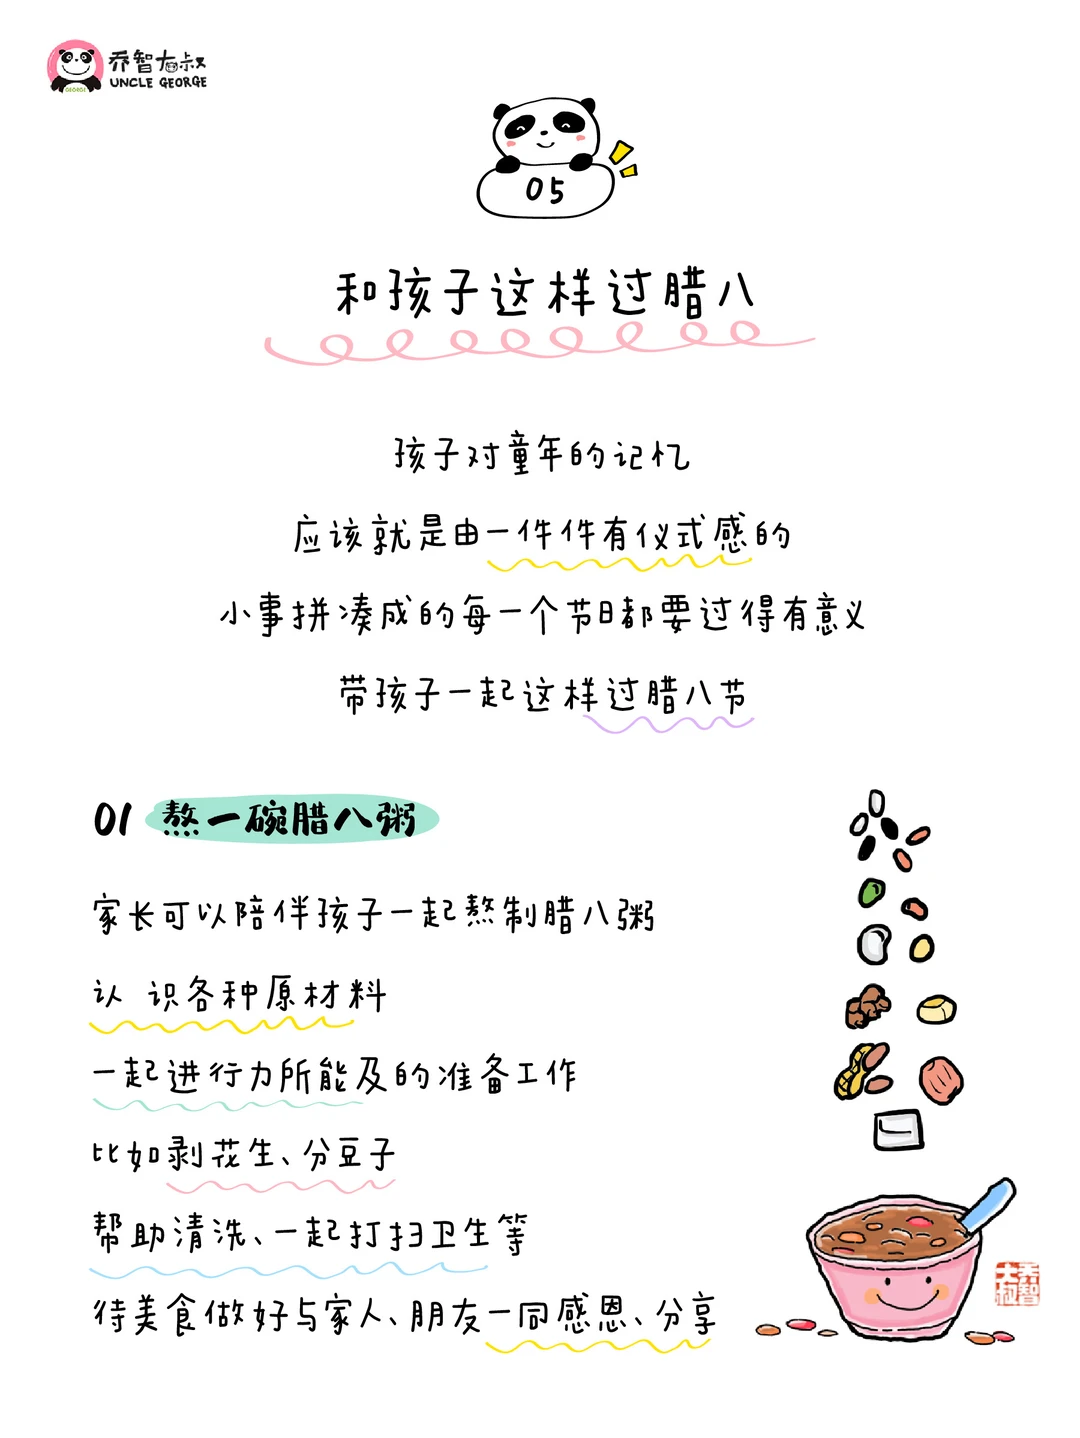 乔智大叔
UNCLE GEORGE
GEORGE
05
和孩子这样过腊八
孩子对童年的记忆
应该就是由一件件有仪式感的
小事拼凑成的每一个节日都要过得有意义
带孩子一起这样过腊八节
01 熬一碗腊八粥
家长可以陪伴孩子一起熬制腊八粥
认 识各种原材料
一起进行力所能及的准备工作
比如剥花生、分豆子
帮助清洗、一起打扫卫生等
待美食做好与家人、朋友一同感恩、分享
乔智大叔